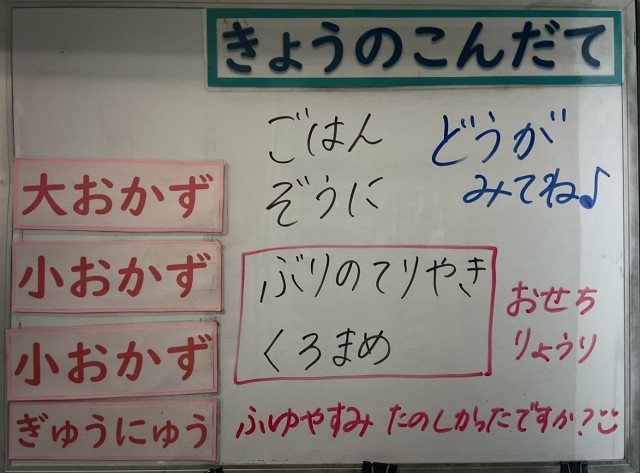 きょうのこんだて
ごはん
どうが
みてね♪
大おかず
ぞうに
小おかず
ぶりのてりやき
小おかず
くろまめ
おせち
りょうり
ぎゅうにゅう
ふゆやすみ たのしかったですか?